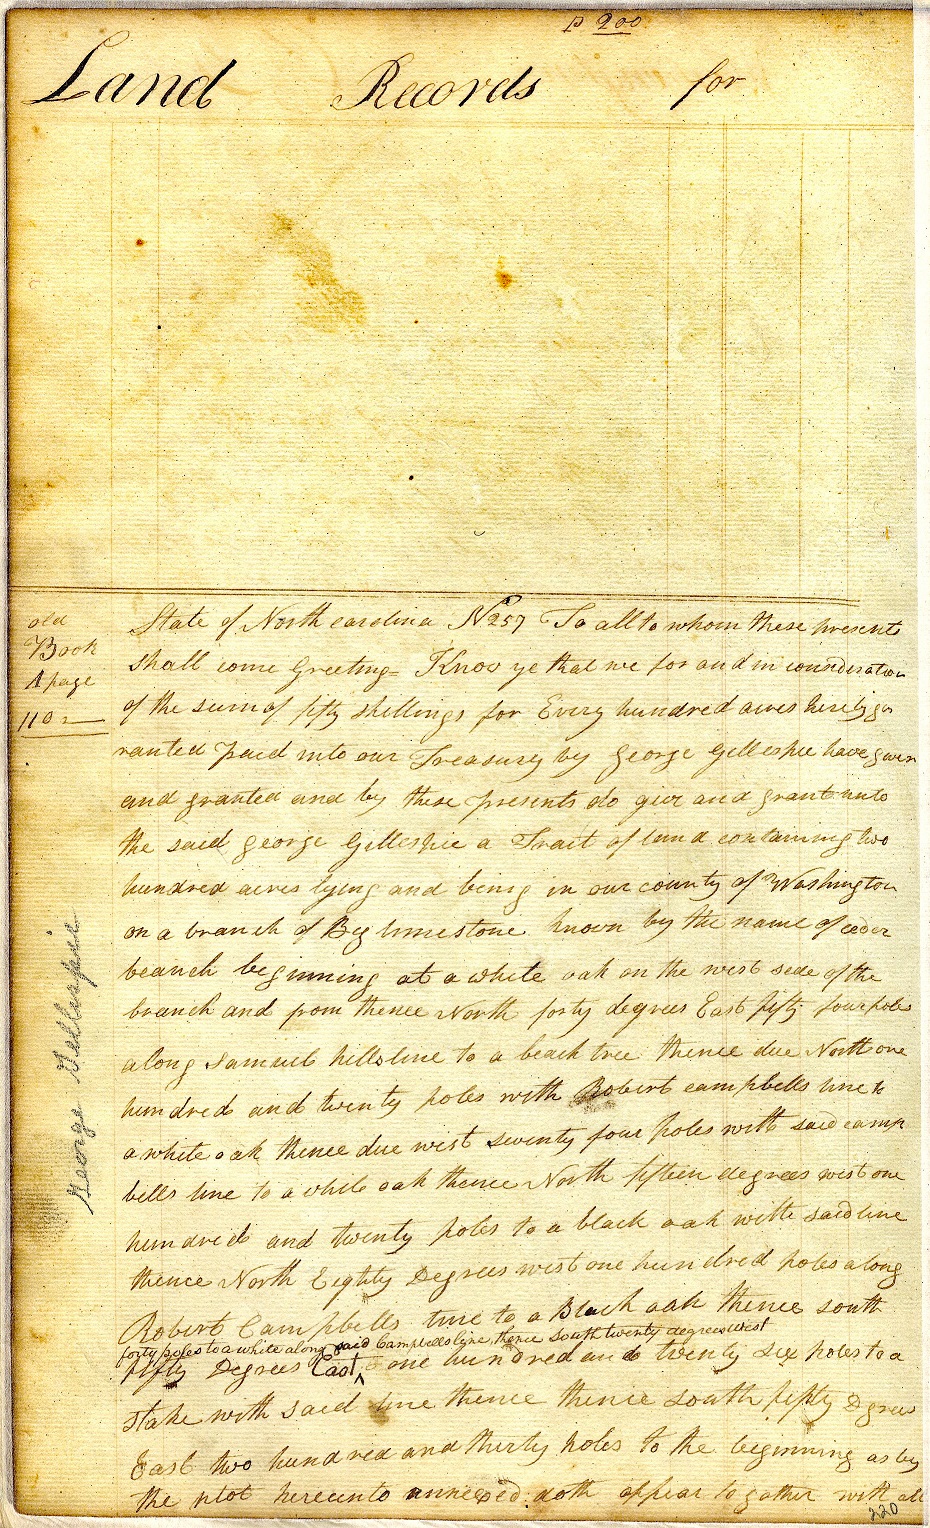 p 200
Land Records for
old
Book
A page
110
State of North carolina No 257 To all to whom these presents
shall come Greeting= Know ye that we for and in consideration
of the sum of fifty shillings for Every hundred acres hereby g
ranted paid into our Treasury by George Gillespie have given
and granted and by these presents do give and grant unto
the said George Gillespie a Tract of land containing two
hundred acres lying and being in our county of Washington
on a branch of Big limestone known by the name of ceder
beanch beginning at a white oak on the west side of the
branch and from thence North forty degrees East fifty four poles
along Samuel hills line to a beach tree thence due North one
hundred and twenty poles with Robert campbells line to
a white oak thence due west seventy four poles with said camp
bells line to a white oak thence North fifteen degrees west one
hundred and twenty poles to a black oak with said line
thence North Eighty Degrees west one hundred poles along
Robert Campbells line to a Black oak thence south
forty poles to a white along said Campbells line, thence south twenty degrees west
fifty Degrees East ^ one hundred and twenty six poles to a
stake with said line thence thence south fifty Dgrees
East two hundred and thirty poles to the beginning as by
the plot hereunto annexed doth appear to gather with all
George Gillespie
220